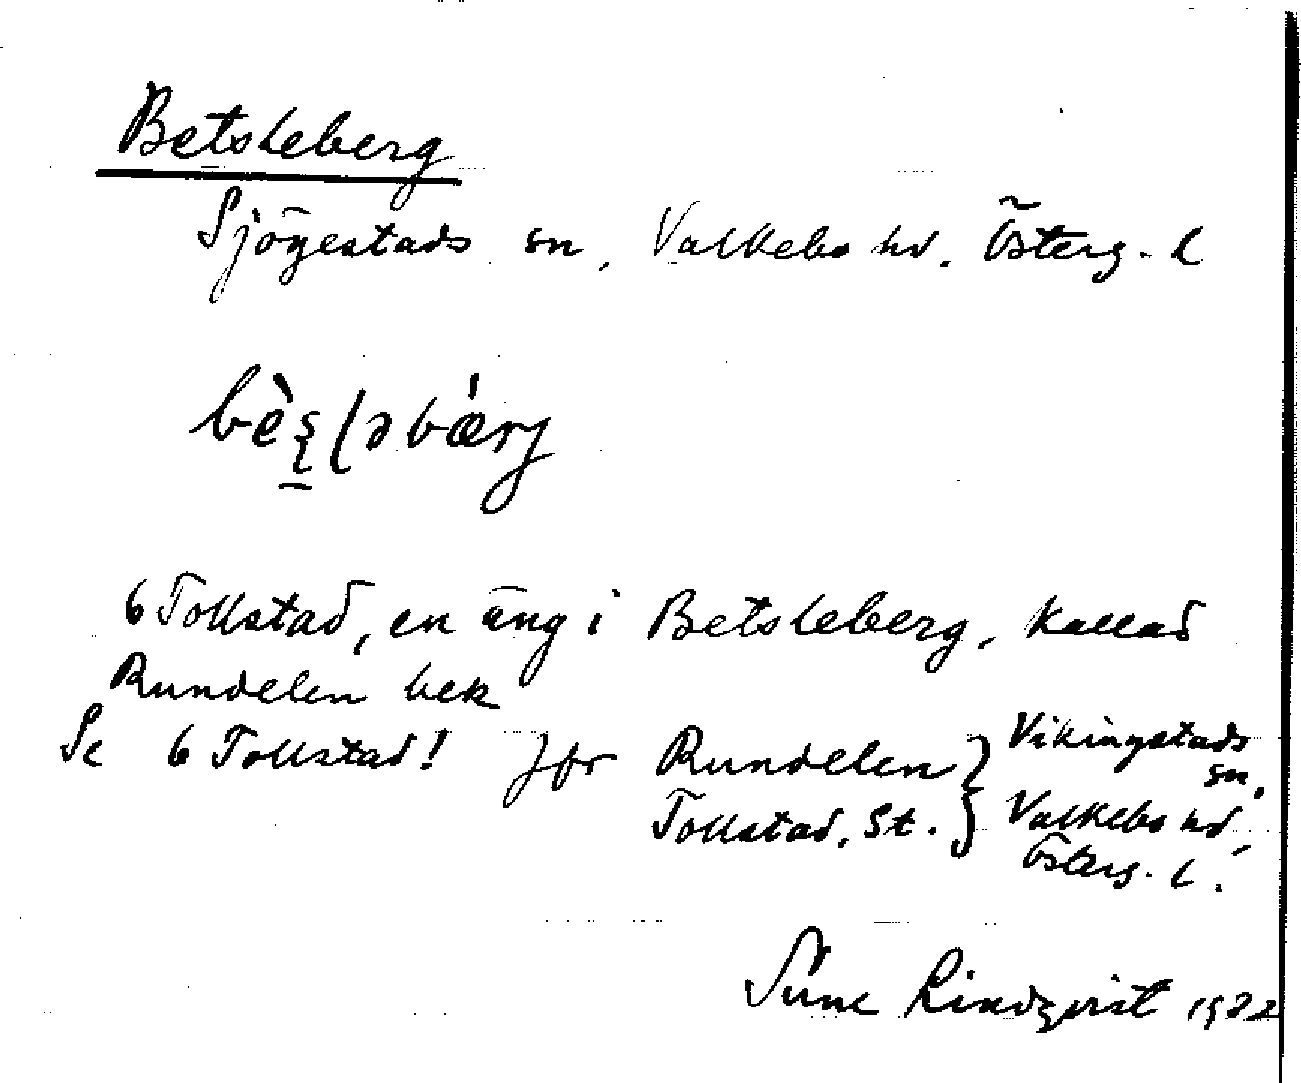 Betsleberg
Sjögestads sn, Valkebo hd. Österg. l
bèʂləbǽrj
6 Tollstad, en äng i Betsleberg, kallad
Rundelen bek
Se 6 Tollstad! Jfr Rundelen } Vikingstads sn,
Tollstad, St. } Valkebo hd,
Österg. l.
Sune Lindqvist 1922